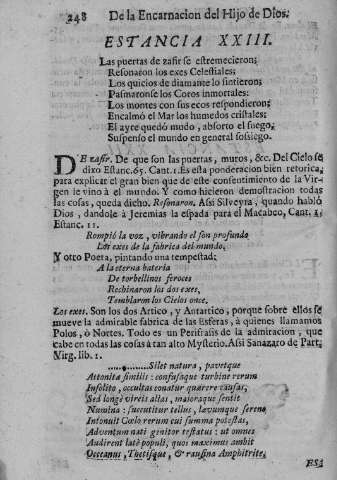 248 De la Encarnacion del Hijo de Dios.
ESTANCIA XXIII.
Las puertas de zafir se estremecieron;
Resonaron los exes Celestiales;
Los quicios de diamante lo sintieron;
Pasmaronse los Coros inmortales:
Los montes con sus ecos respondieron;
Encalmó el Mar los humedos cristales;
El ayre quedó mudo, absorto el fuego,
Suspenso el mundo en general sossiego.
DE zafir. De que son las puertas, muros, &c. Del Cielo se
dixo Estanc. 65. Cant. 1. Es esta ponderacion bien retorica,
para explicar el gran bien que de este consentimiento de la Vir-
gen le vino à el mundo. Y como hicieron demostracion todas
las cosas, queda dicho. Resonaron. Assi Silveyra, quando habló
Dios, dandole à Jeremias la espada para el Macabeo, Cant. 1.
Estanc. 11.
Rompiò la voz, vibrando el son profundo
Los exes de la fabrica del mundo.
Y otro Poeta, pintando una tempestad:
A la eterna bateria
De torbellinos feroces
Rechinaron los dos exes,
Temblaron los Cielos once.
Los exes. Son los dos Artico, y Antartico, porque sobre ellos se
mueve la admirable fabrica de las Esferas, à quienes llamamos
Polos, ò Nortes. Todo es un Perifrasis de la admiracion, que
cabe en todas las cosas à tan alto Mysterio. Assi Sanazaro de Part.
Virg. lib. 1.
Silet natura, pavetque
Attonitæ similis: confusaque turbine rerum
Insolito, occultas conatur quærere causas,
Sed longè vireis alias, maioraque sentit
Numina: succutitur tellus, lævumque sereno
Intonuit Cœlo rerum cui summa potestas,
Adventum nati genitor testatus: ut omnes
Audirent latè populi, quos maximus ambit
Occeanus, Thetisque, & rausina Amphitrite.
ES4